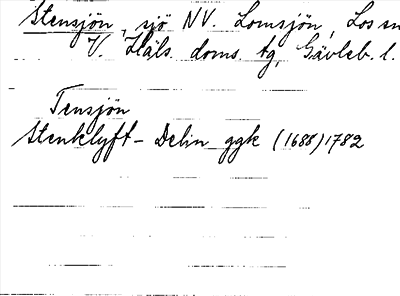 Stensjön, sjö NV. Lomsjön, Los sn
V. Häls. doms tg, Gävleb. l.
Tensjön
Stenklyft - Delin ggk (1688) 1782